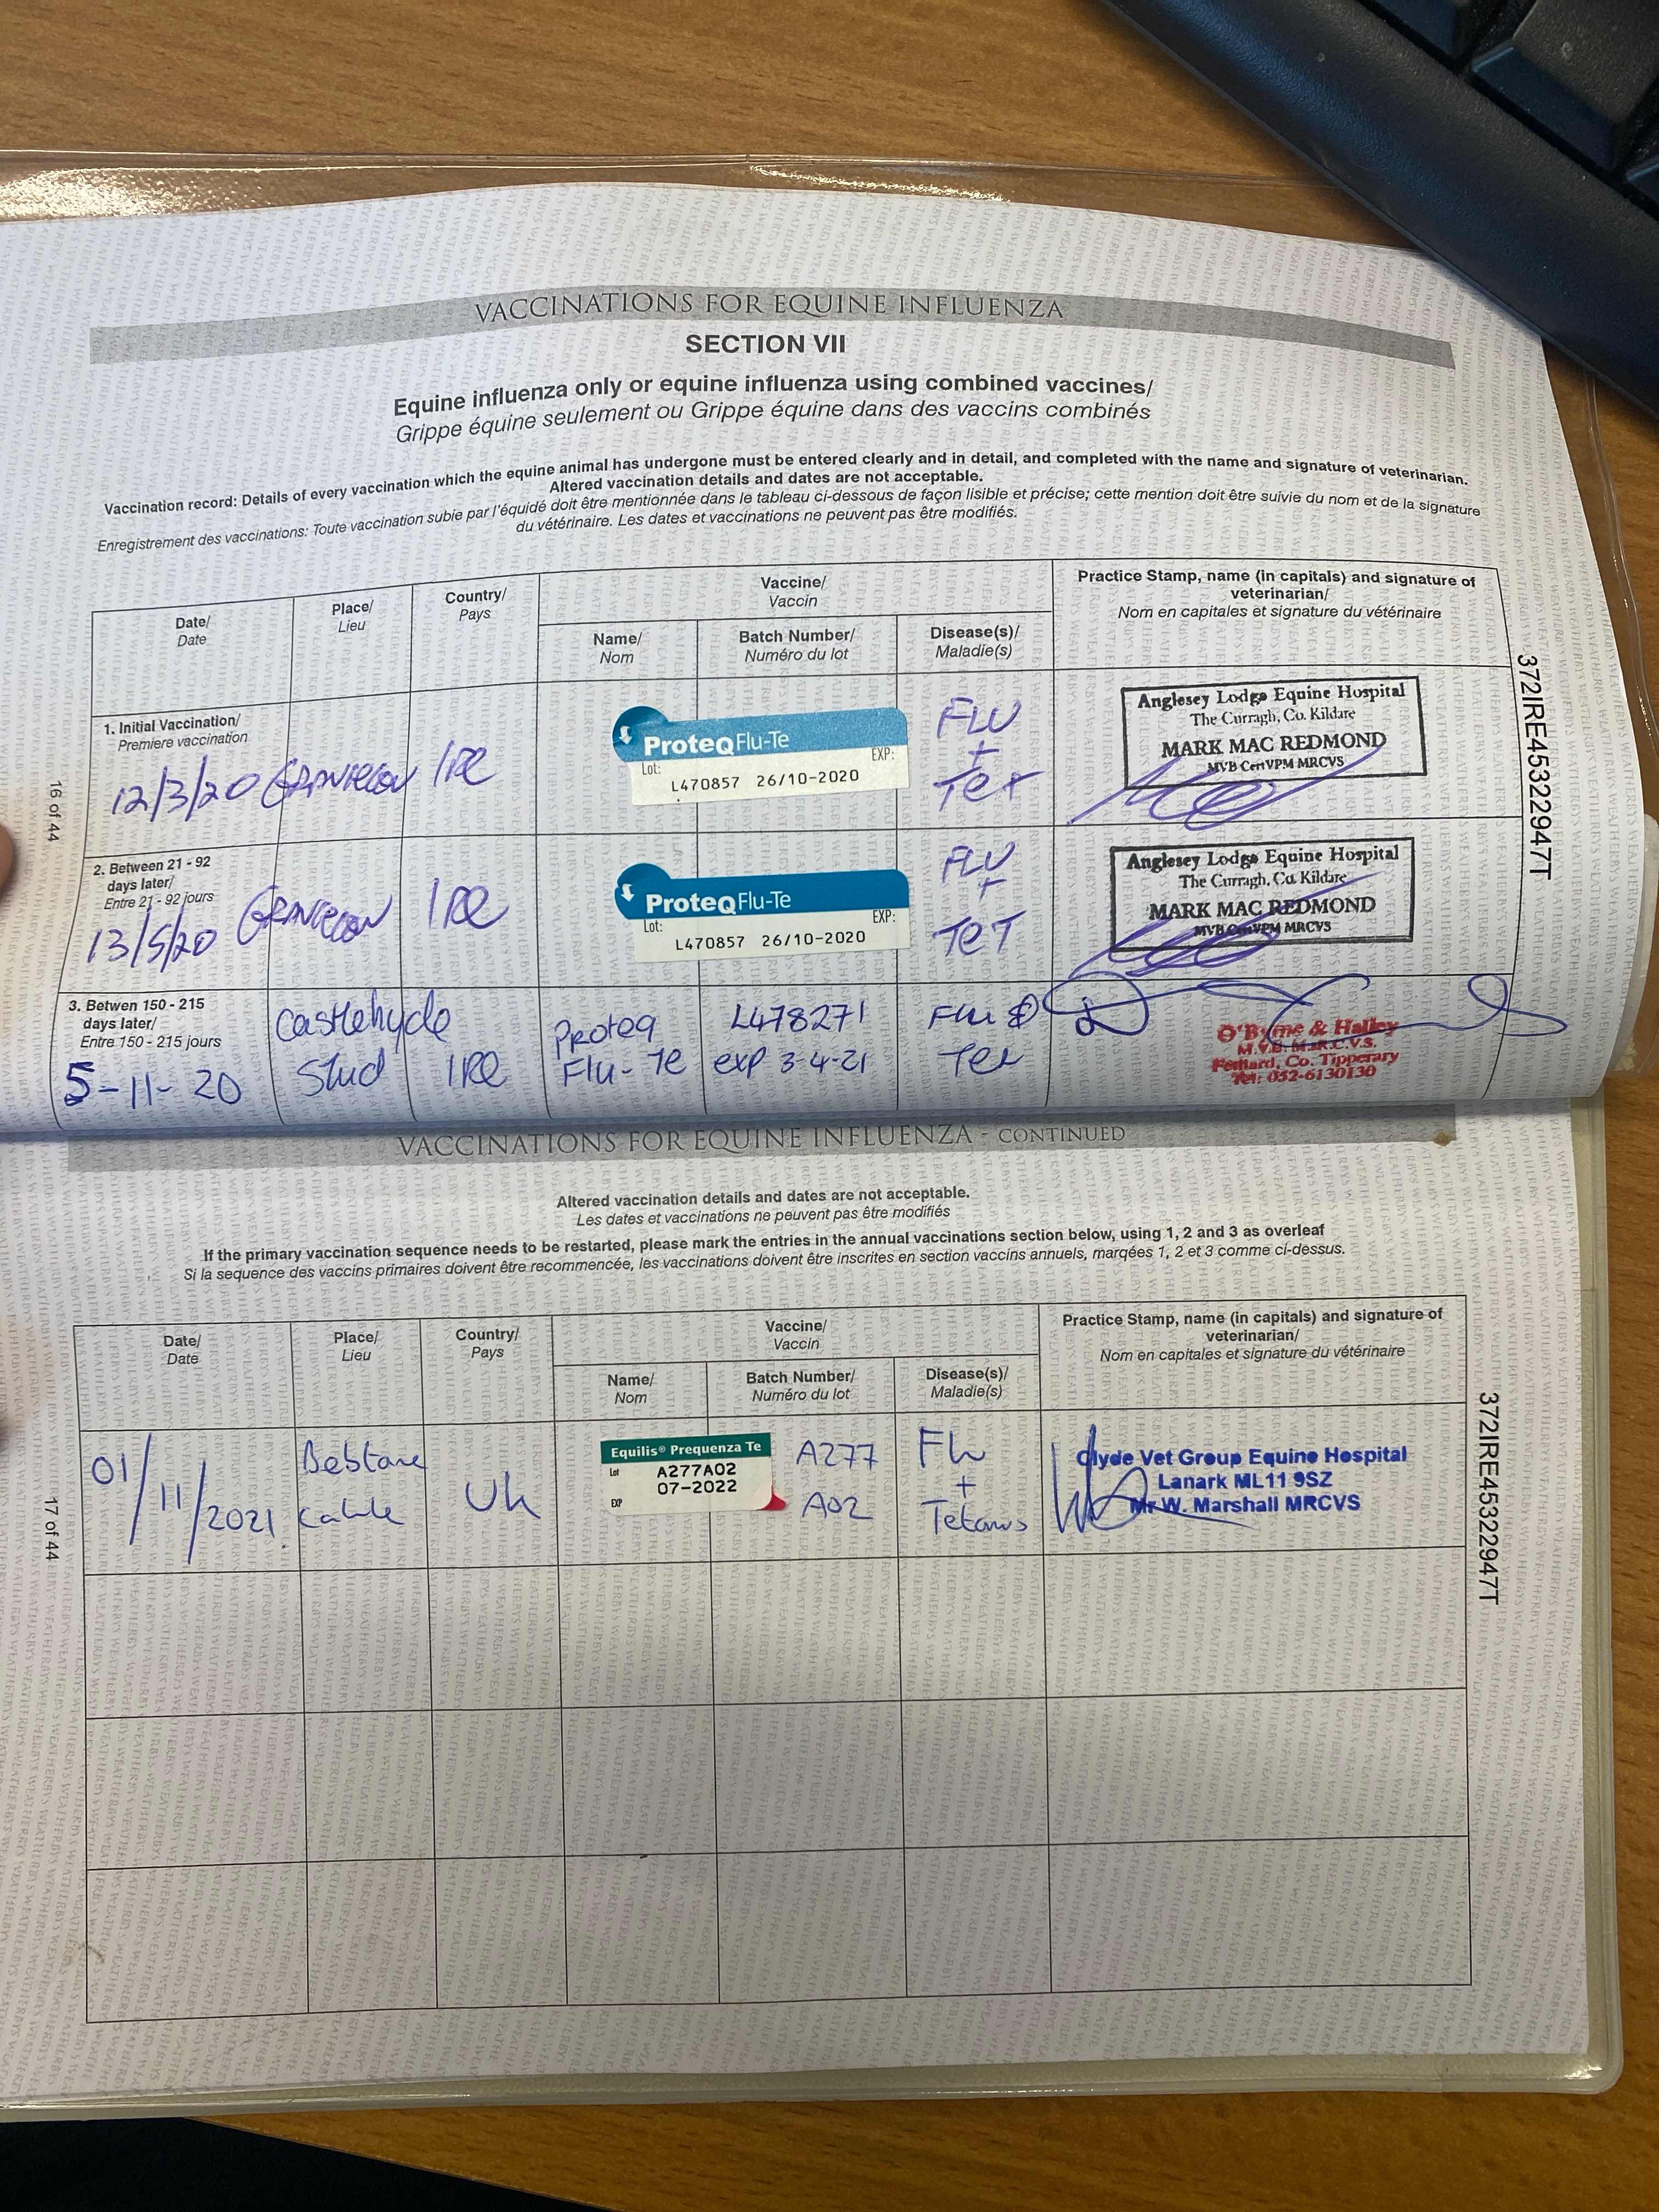 VACCINATIONS FOR EQUINE INFLUENZA
SECTION VII
Equine influenza only or equine influenza using combined vaccines/
Grippe équine seulement ou Grippe équine dans des vaccins combinés
Vaccination record: Details of every vaccination which the equine animal has undergone must be entered clearly and in detail, and completed with the name and signature of veterinarian.
Altered vaccination details and dates are not acceptable.
Enregistrement des vaccinations: Toute vaccination subie par l'équidé doit être mentionnée dans le tableau ci-dessous de façon lisible et précise; cette mention doit être suivie du nom et de la signature
du vétérinaire. Les dates et vaccinations ne peuvent pas être modifiés.
Date/
Date
Place/
Lieu
Country/
Pays
Vaccine/
Vaccin
Name/
Nom
Batch Number/
Numéro du lot
Disease(s)/
Maladie(s)
Practice Stamp, name (in capitals) and signature of
veterinarian/
Nom en capitales et signature du vétérinaire
1. Initial Vaccination/
Premiere vaccination
12/3/20
IRE
ProteqFlu-Te
Lot:
EXP:
L470857 26/10-2020
FLU
+
TET
Anglesey Lodge Equine Hospital
The Curragh, Co. Kildare
MARK MAC REDMOND
MVB CertVPM MRCVS
2. Between 21 - 92
days later/
Entre 21 - 92 jours
13/5/20
IRE
ProteqFlu-Te
Lot:
EXP:
L470857 26/10-2020
FLU
+
TET
Anglesey Lodge Equine Hospital
The Curragh, Co. Kildare
MARK MAC REDMOND
MVB CertVPM MRCVS
3. Betwen 150 - 215
days later/
Entre 150 - 215 jours
5-11-20
Castlehyde
Stud
IRE
Proteq
Flu-Te
L478271
exp 3-4-21
Flu &
Tet
O'Byrne & Halley
M.V.B. M.R.C.V.S.
Fethard, Co. Tipperary
Tel: 052-6130130
16 of 44
372IRE45322947T
VACCINATIONS FOR EQUINE INFLUENZA - CONTINUED
Altered vaccination details and dates are not acceptable.
Les dates et vaccinations ne peuvent pas être modifiés
If the primary vaccination sequence needs to be restarted, please mark the entries in the annual vaccinations section below, using 1, 2 and 3 as overleaf
Si la sequence des vaccins primaires doivent être recommencée, les vaccinations doivent être inscrites en section vaccins annuels, marqées 1, 2 et 3 comme cí-dessus.
Date/
Date
Place/
Lieu
Country/
Pays
Vaccine/
Vaccin
Name/
Nom
Batch Number/
Numéro du lot
Disease(s)/
Maladie(s)
Practice Stamp, name (in capitals) and signature of
veterinarian/
Nom en capitales et signature du vétérinaire
01/11/2021
Uk
Equilis® Prequenza Te
Lot A277A02
07-2022
EXP
A277
A02
Flu
+
Tetanus
Clyde Vet Group Equine Hospital
Lanark ML11 9SZ
Mr W. Marshall MRCVS
17 of 44
372IRE45322947T